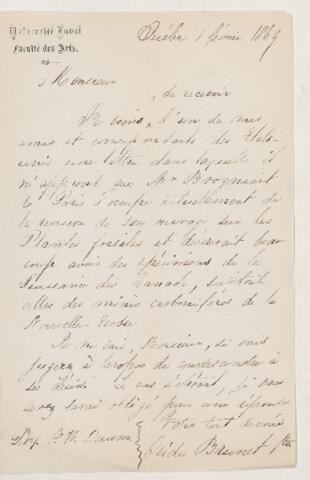 Université Laval
Faculté des Arts.
Québec 1 février 1869
Monsieur
de recevoir
Je viens, d'un de mes
amis et correspondants des Etats-
unis une lettre dans laquelle il
m'apprend que Mr Brogniart
de Paris s'occupe actuellement de
la revision de son ouvrage sur les
Plantes fossiles et désirerait beau-
coup avoir des spécimens de la
Puissance du Canada, surtout
celles des mines carbonifères de la
Nouvelle-Ecosse
Je ne sais, Monsieur, si vous
jugerez à propos de condescendre à
ce désir. Le cas échéant, je vous
serais obligé pour une réponse
Votre tout dévoué
Prof. J. W. Dawson
Ovide Brunet Ptre